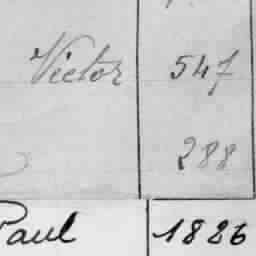 Victor 547
288
Paul 1826